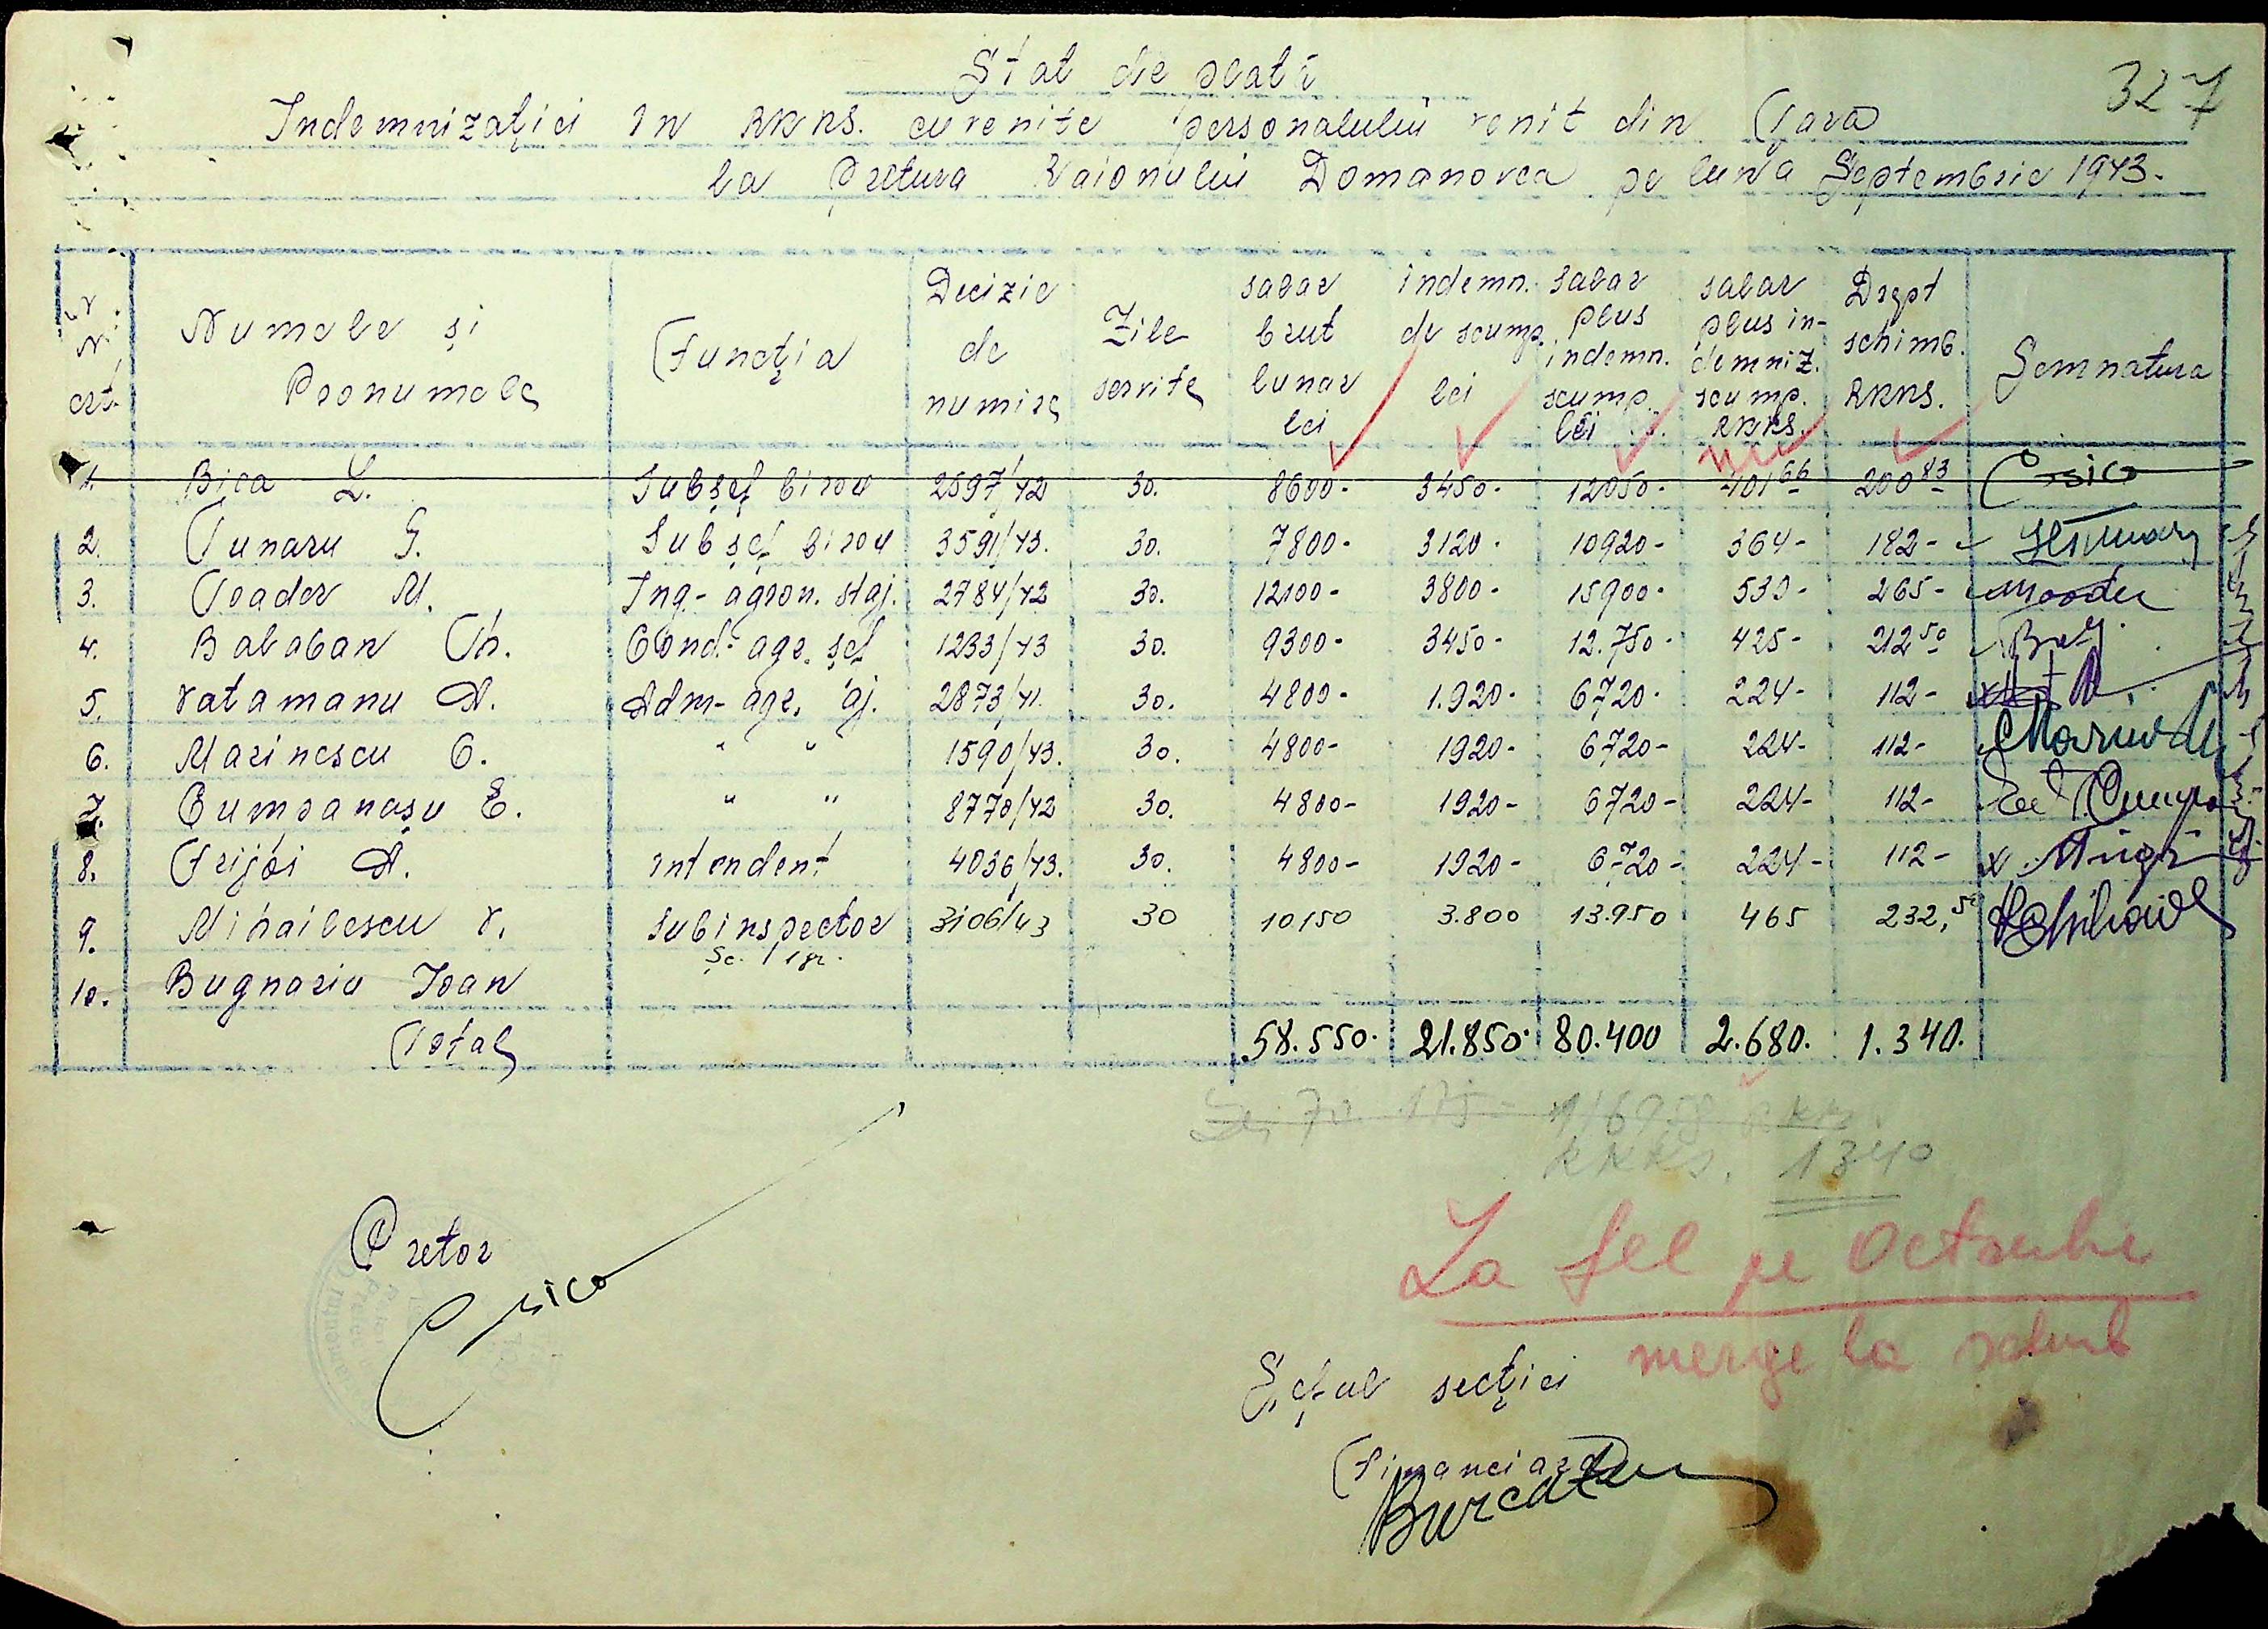 327
Stat de plată
Indemnizației în RKKS. cuvenite personalului venit din Țară
la Pretura Raionului Domanovca pe luna Septembrie 1943.
Nr. crt. Numele și Pronumele Funcția Decizie de numire Zile servite salar brut lunar lei indemn. de scump. lei salar plus indemn. scump. lei salar plus indemniz. scump. RKKS. Drept schimb. RKKS. Semnatura
1. Bica L. Subșef birou 2597/42 30. 8600- 3450- 12050- 401 66 200 83
2. Tunaru G. Subșef birou 3591/43. 30. 7800- 3120- 10920- 364- 182-
3. Toader M. Ing.- agron. staj. 2784/42 30. 12100- 3800- 15900- 530- 265-
4. Balaban Th. Cond- agr. șef 1233/43 30. 9300- 3450- 12.750- 425- 212 50
5. Vatamanu A. Adm- agr. aj. 2873/41. 30. 4800- 1.920- 6720- 224- 112-
6. Marinescu C. " " 1590/43. 30. 4800- 1920- 6720- 224- 112-
7. Cumpanașu E. " " 8770/42 30. 4800- 1920- 6720- 224- 112-
8. Frijoi A. Intendent 4036/43. 30. 4800- 1920- 6720- 224- 112-
9. Mihailescu V. Subinspector 3106/43 30 10150 3.800 13.950 465 232,5
Șc. 1 gr.
10. Bugnariu Ioan
Total 58.550. 21.850. 80.400 2.680. 1.340.
RKKS. 1340
Pretor
La fel pe Octombrie
merge la schimb
Șeful secției
Financiară
Burcat